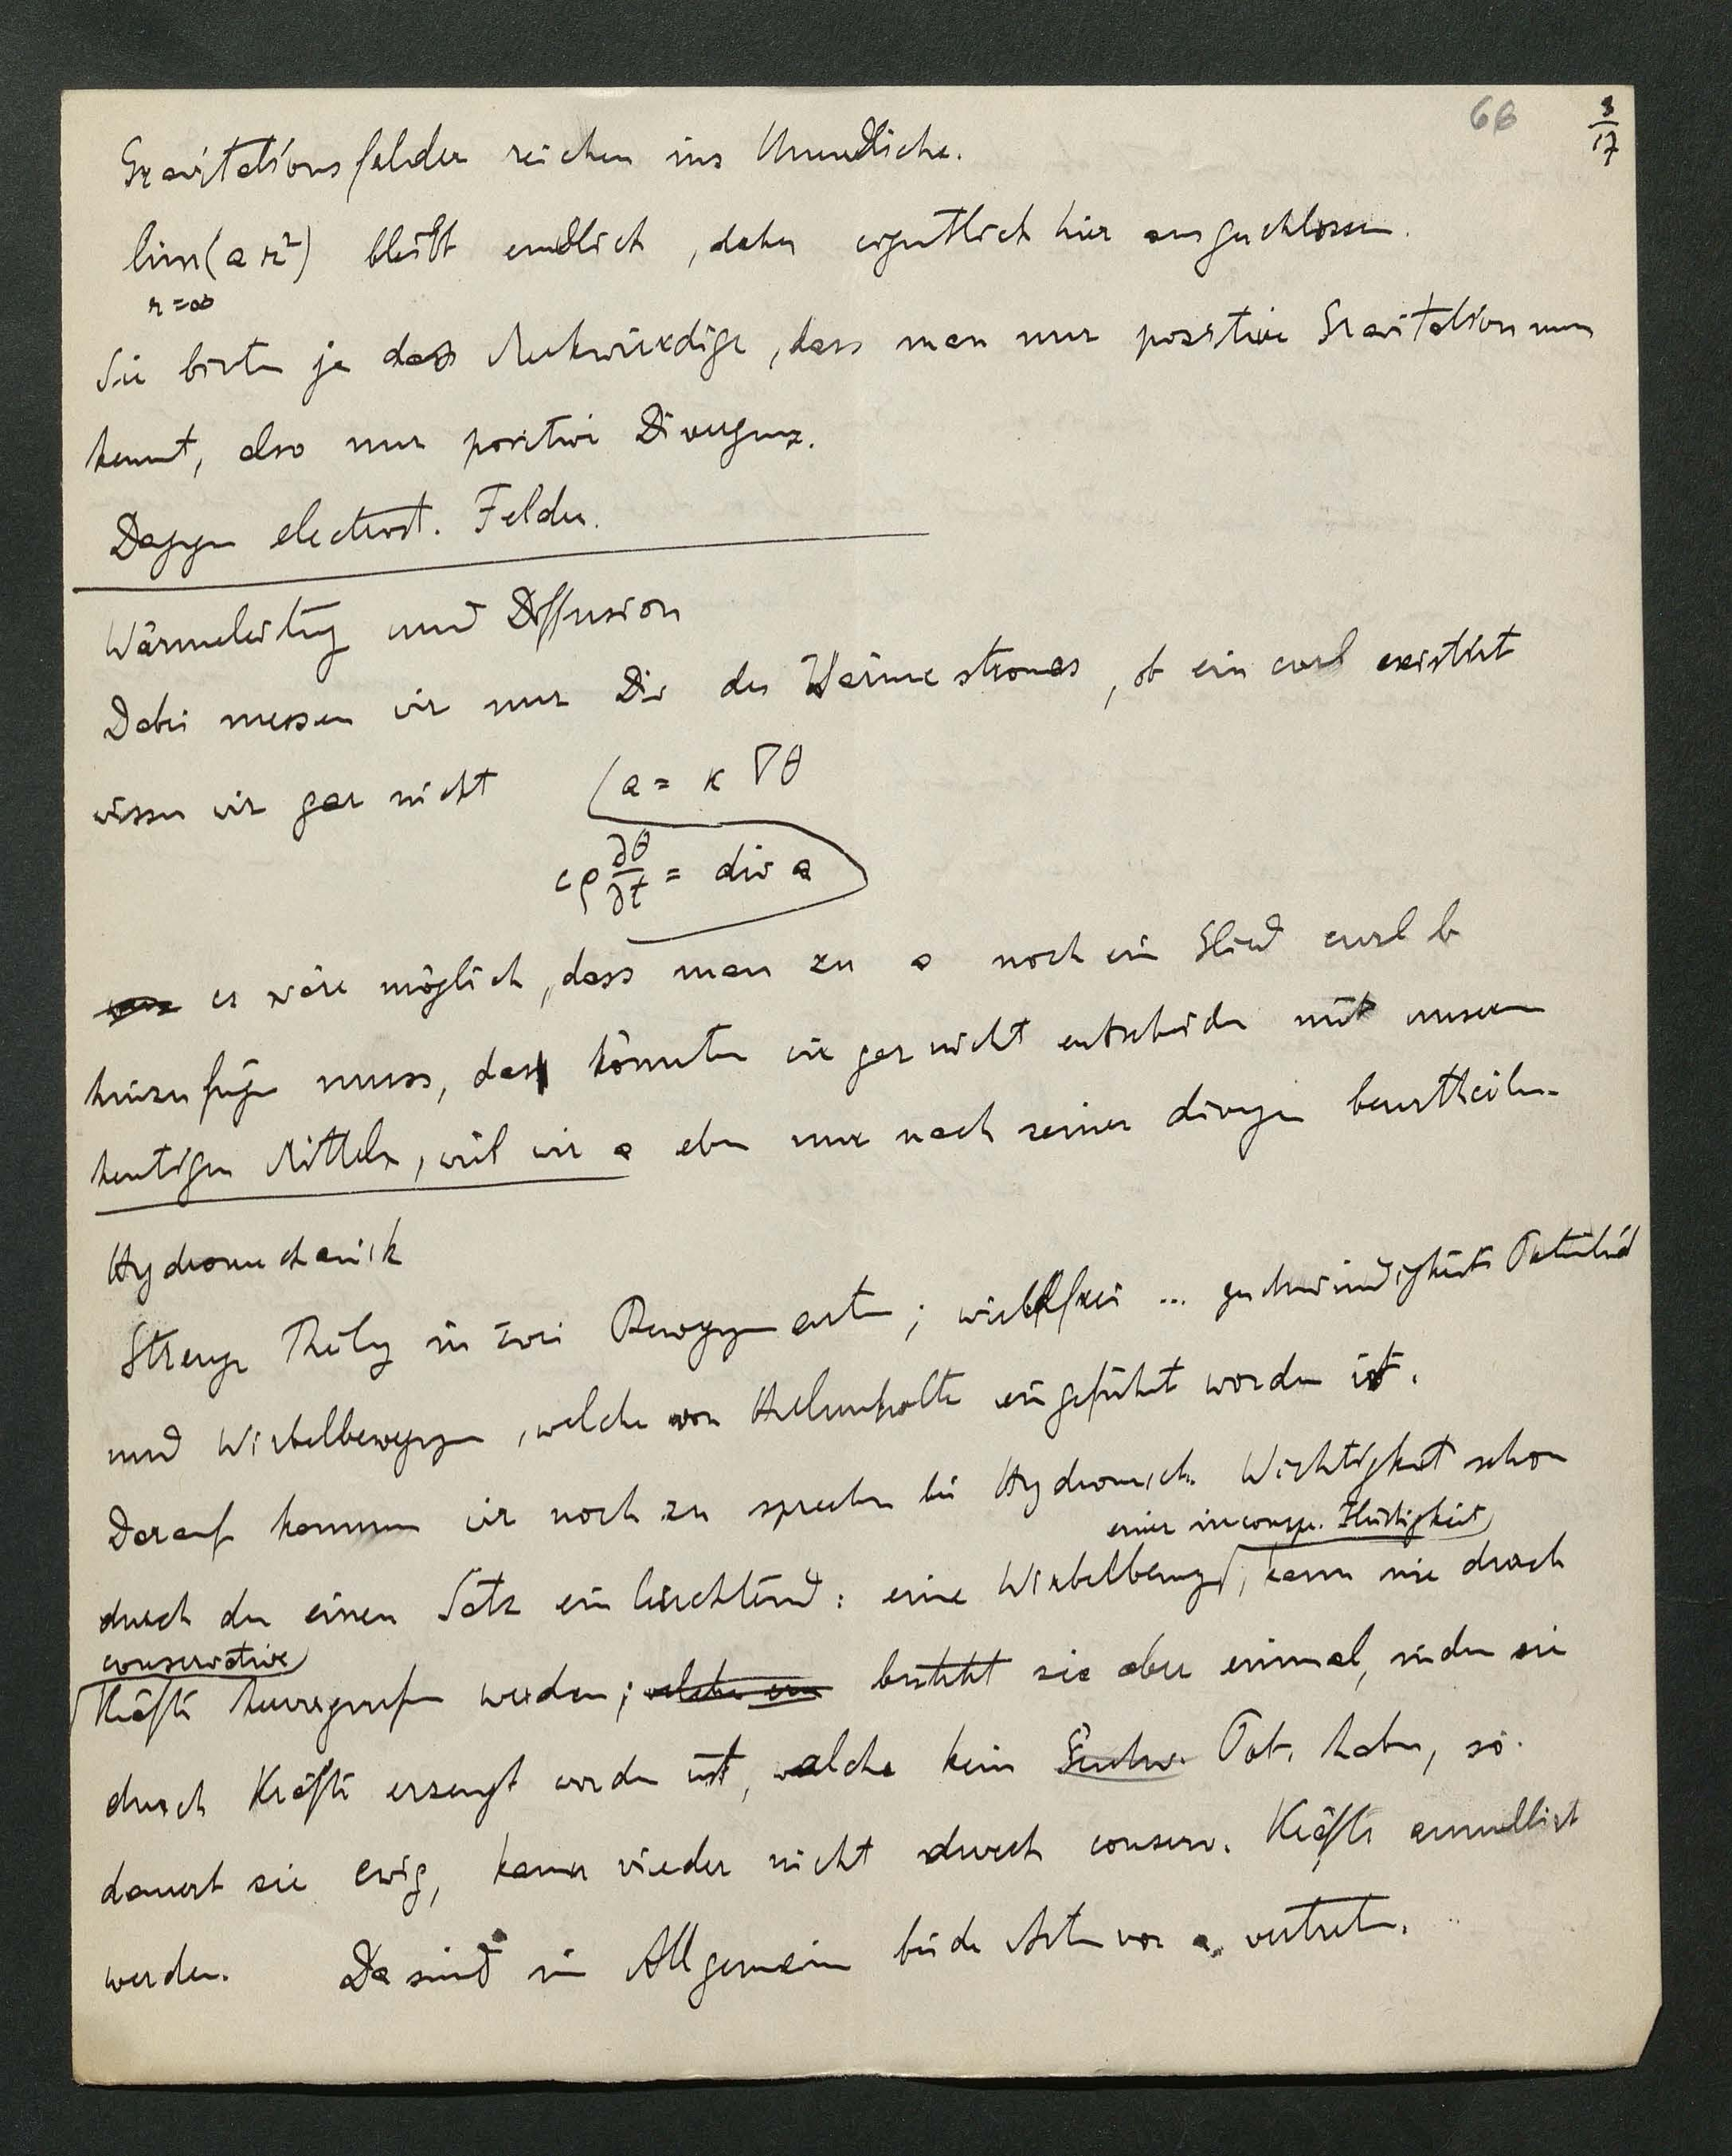 68
8/17
Gravitationsfelder reichen ins Unendliche.
lim(a r²) bleibt endlich, daher eigentlich hier ausgeschlossen.
r=∞
Sie bieten ja das Merkwürdige, dass man nur positive Gravitation nun
kennt, also nur positive Divergenz.
Dagegen electrost. Felder.
Wärmeleitung und Diffusion
Dabei messen wir nur Div des Wärmestromes, ob ein curl existirt
wissen wir gar nicht (a = κ ∇θ
cρ ∂θ/∂t = div a
es wäre möglich, dass man zu a noch ein Glied curl b
hinzufügen muss, das könnten wir gar nicht entscheiden mit unseren
heutigen Mitteln, weil wir a eben nur nach seiner divergen beurtheilen.
Hydromechanik
Strenge Theilung in zwei Bewegungsarten; wirbelfrei ... geschwindigkeits Potential
und Wirbelbewegungen, welche von Helmholtz eingeführt worden ist.
Darauf kommen wir noch zu sprechen bei Hydromech. Wichtigkeit schon
einer incompr. Flüssigkeit
durch den einen Satz einleuchtend: eine Wirbelbewegung, kann nie durch
conservative
Kräfte hervorgerufen werden; welche besteht sie aber einmal, indem sie
durch Kräfte erzeugt worden ist, welche kein Geschw. Pot. haben, so
dauert sie ewig, kann wieder nicht durch conserv. Kräfte annullirt
werden. Da sind im Allgemeinen beide Arten von a vertreten.